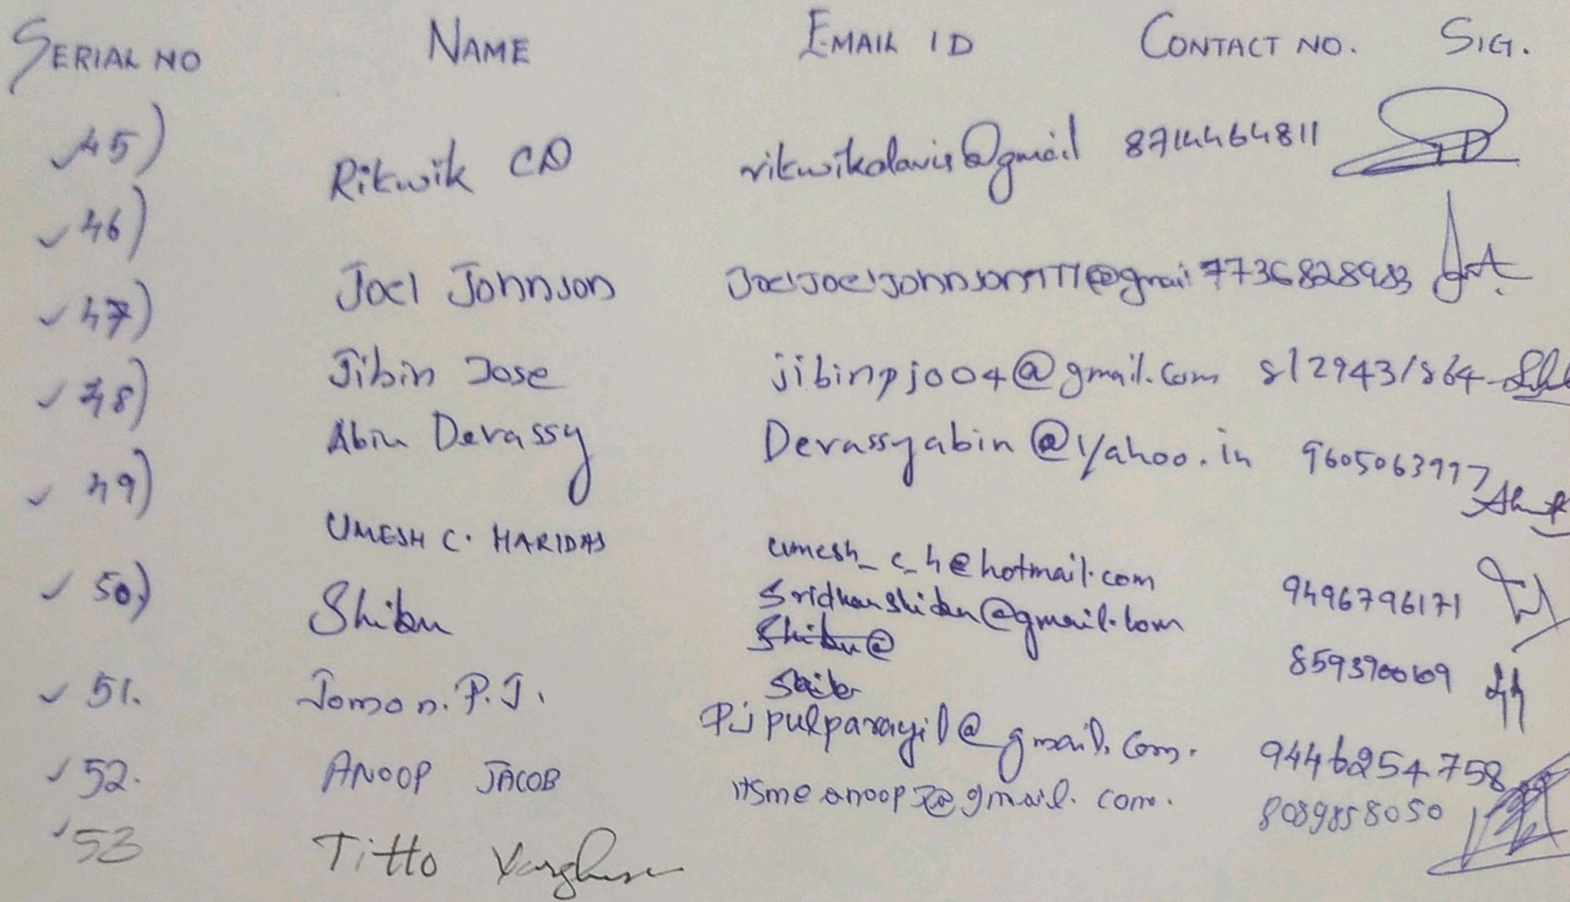 SERIAL NO NAME EMAIL ID CONTACT NO. SIG.
45) Rikwik CD rikwikdavis@gmail 8714464811
46) Joel Johnson 7736828983
47) Jibin Jose jibinpjo04@gmail.com 8129431864
48) Abin Devassy Devassyabin@yahoo.in 9605063997
49) UMESH C. HARIDAS umesh_c_h@hotmail.com 9496796171
50) Shibu Sridharshibu@gmail.com
Shibu@
51. Jomon. P.J. 
Pjpulparayil@gmail.com. 9446254758
52. ANOOP JACOB itsmeanoop7@gmail.com. 8089858050
53 Titto Varghese